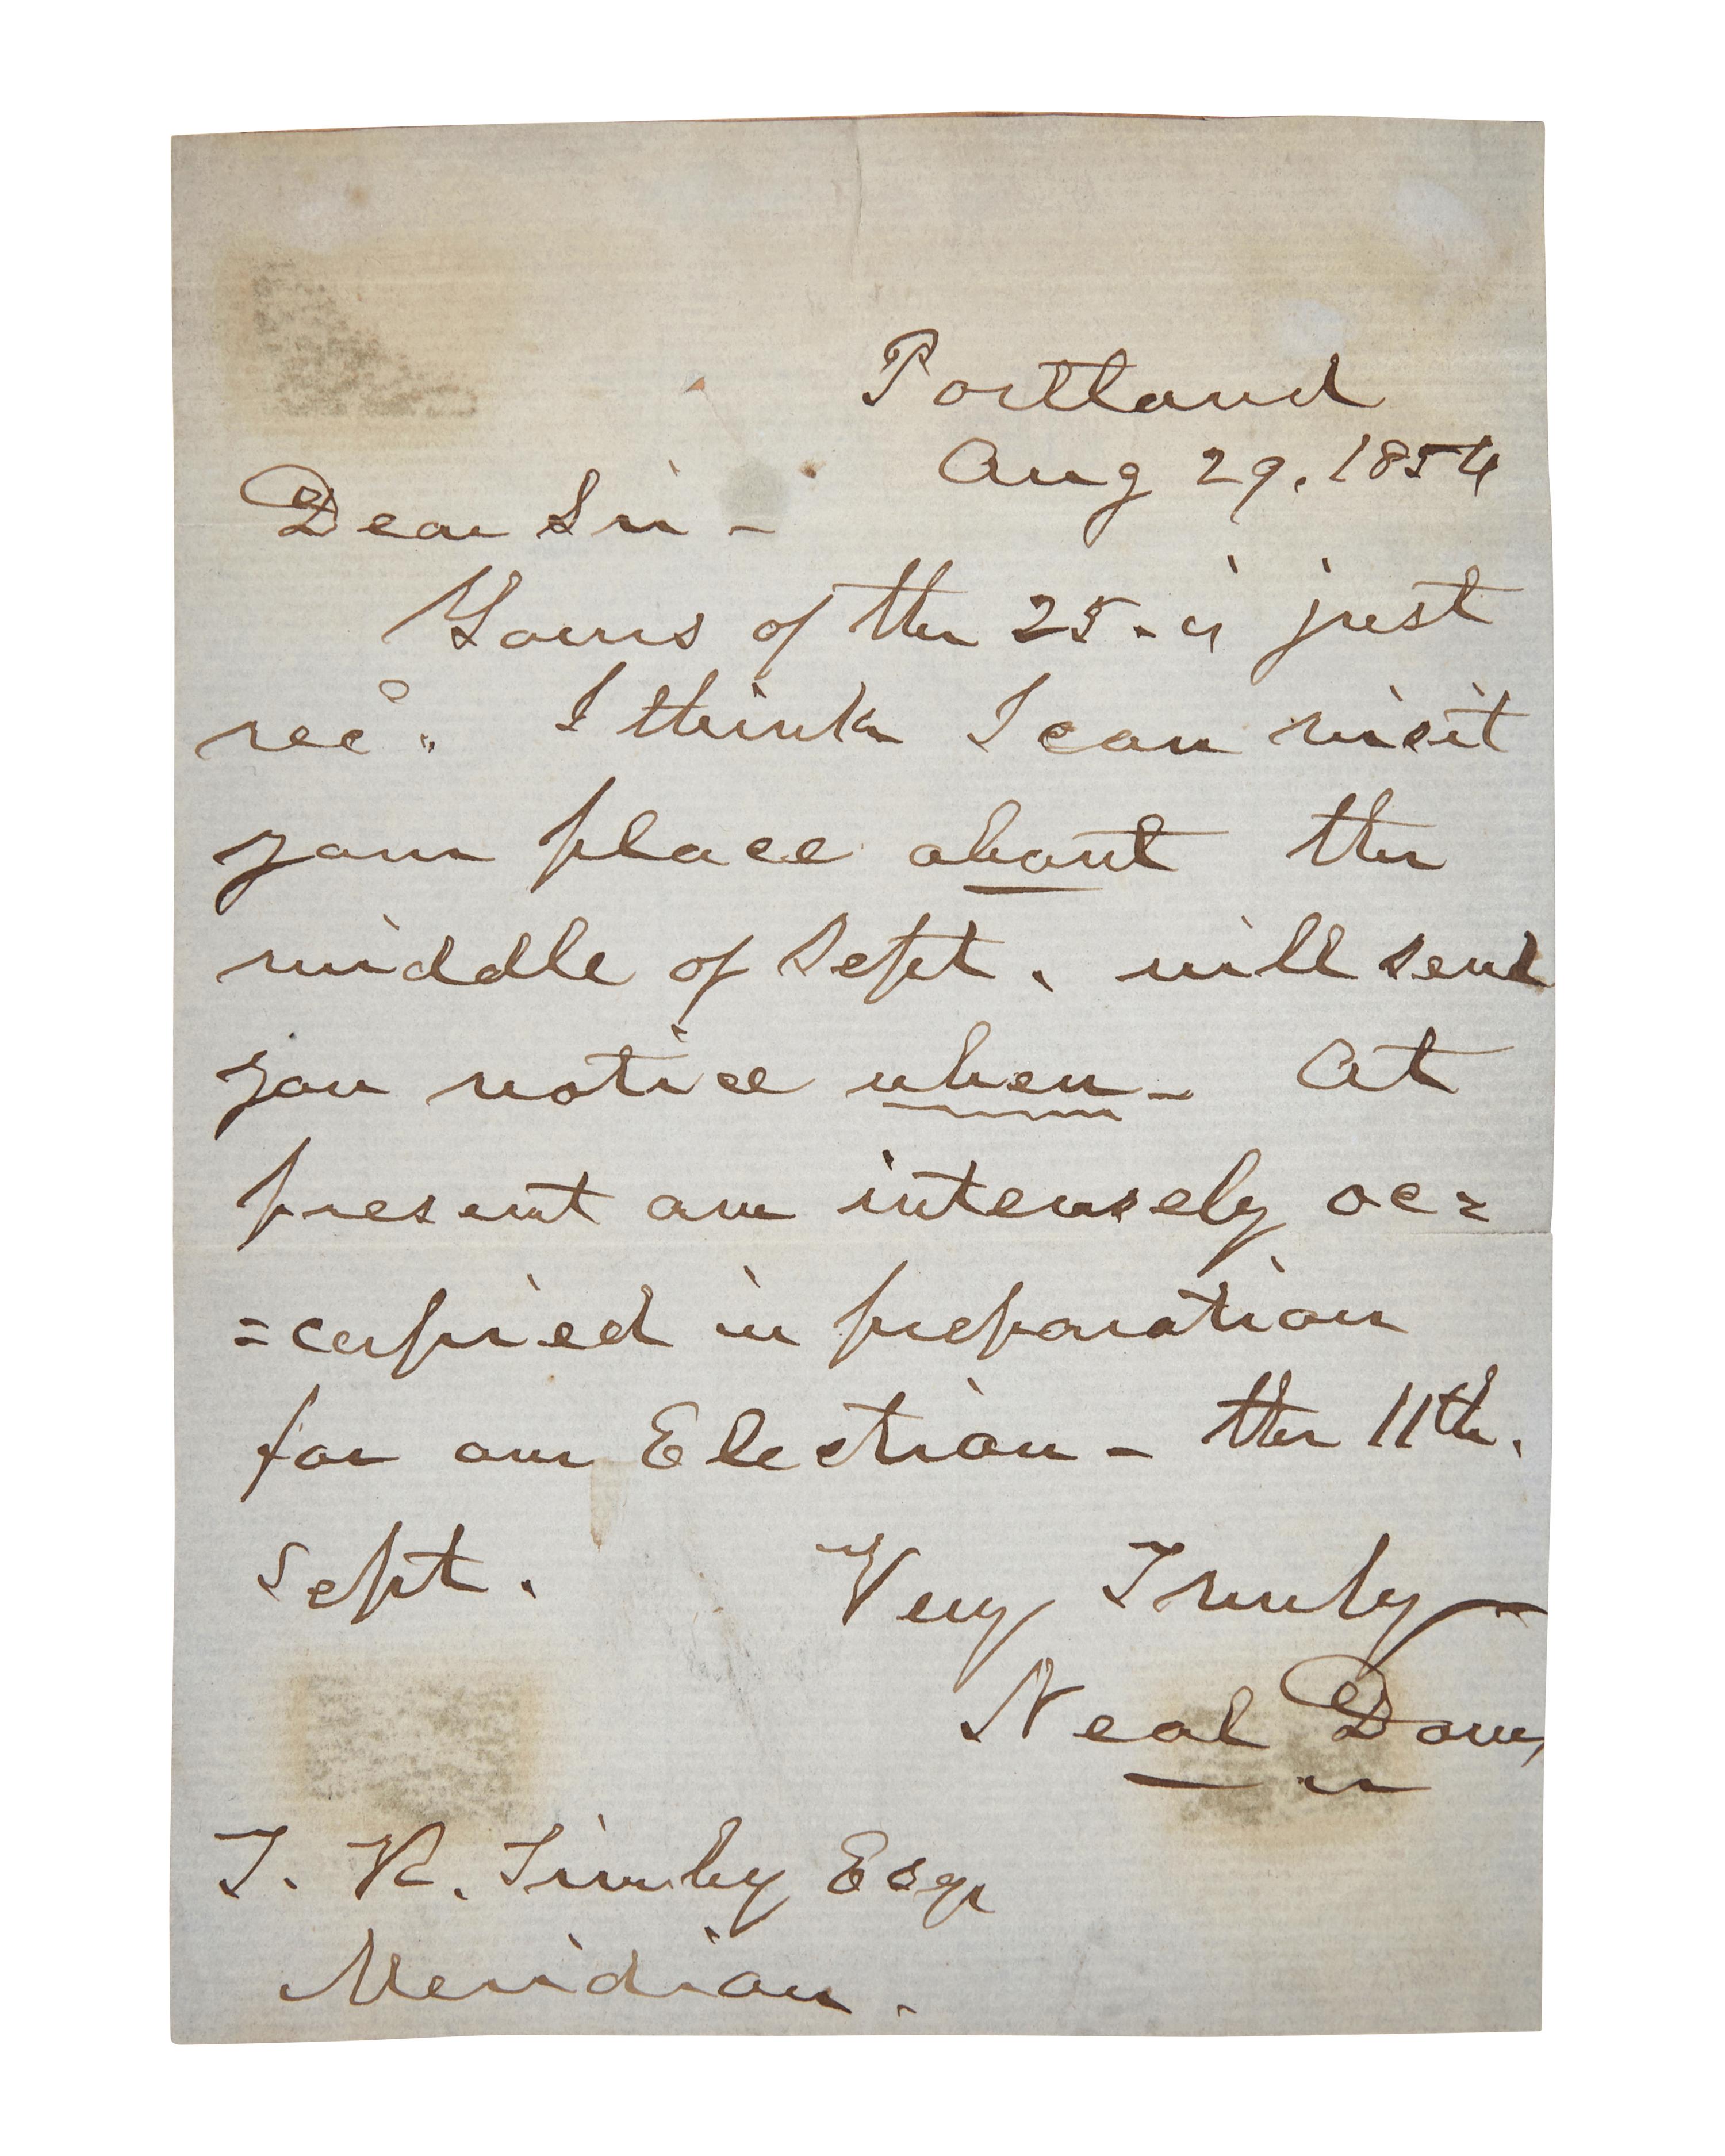 Portland
Aug 29. 1854
Dear Sir -
Yours of the 25 - is just
recd. I think I can visit
your place about the
middle of Sept. will send
you notice when - At
present am intensely oc=
=cupied in preparation
for our Election - the 11th.
Sept. Very Truly
Neal Dow,
T. R. Timby Esqr
Meridian.